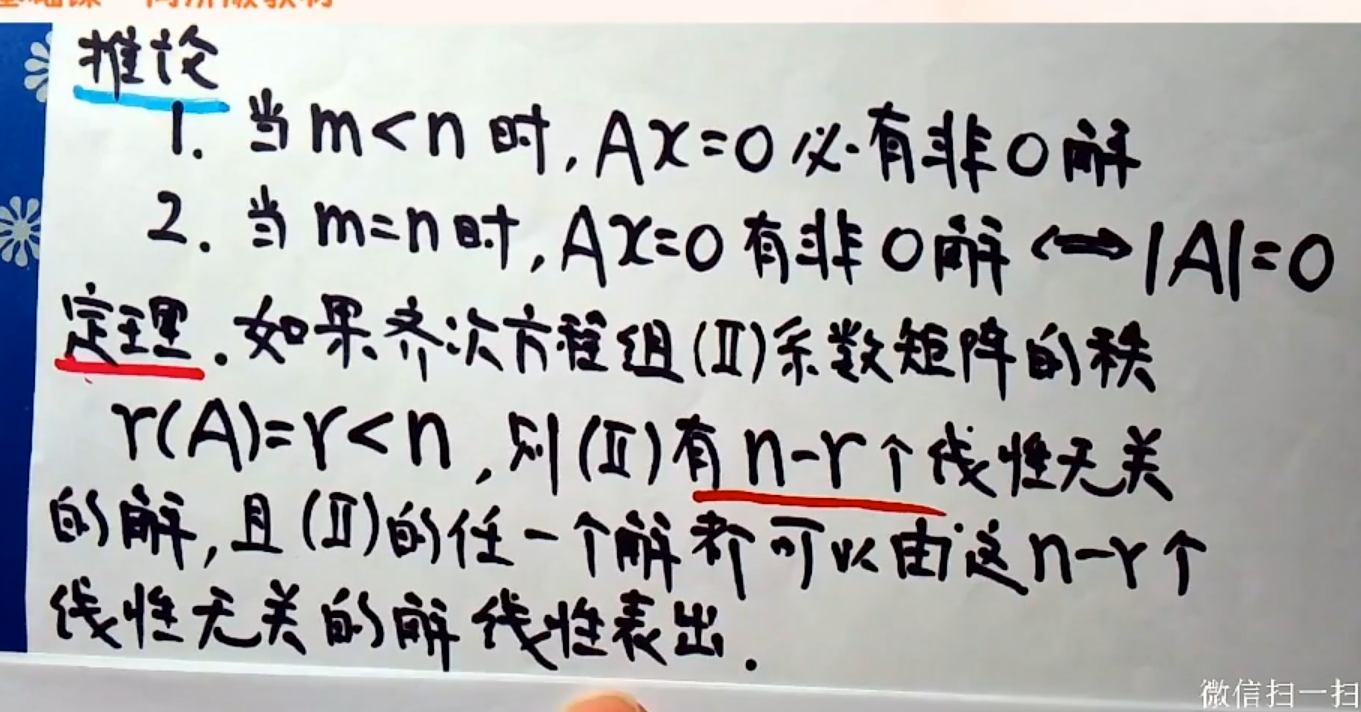 推论
1. 当 m<n 时, Ax=0 必有非0解
2. 当 m=n 时, Ax=0 有非0解 <=> |A|=0
定理. 如果齐次方程组(Ⅱ)系数矩阵的秩
r(A)=r<n, 则(Ⅱ)有 n-r个线性无关
的解, 且(Ⅱ)的任一个解都可以由这n-r个
线性无关的解线性表出.
微信扫一扫